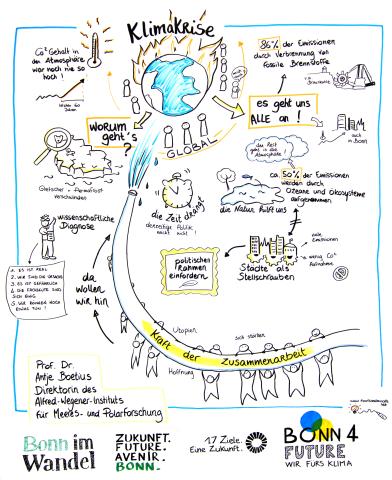 Klimakrise
CO² Gehalt in
der Atmosphäre
war noch nie so
hoch!
86% der Emissionen
durch Verbrennung von
fossile Brennstoffe
es geht uns
ALLE an!
auch
in Bonn
WORUM
geht's
?
GLOBAL
die Zeit
geht in die
Atmosphäre
ca. 50% der Emissionen
werden durch
Ozeane und Ökosysteme
aufgenommen
die Natur hilft uns
Gletscher + Permafrost
verschwinden
die Zeit drängt
derzeitige Politik
reicht nicht!
wissenschaftliche
Diagnose
1. ES IST REAL
2. WIR SIND DIE URSACHE
3. ES IST GEFÄHRLICH
4. DIE FACHLEUTE SIND
SICH EINIG
5. WIR KÖNNEN NOCH
ETWAS TUN!
politischen
Rahmen
einfordern
viele
Emissionen
wenig CO²
Aufnahme
Städte als
Stellschrauben
da
wollen
wir hin
Utopien
sich stärken
Kraft der Zusammenarbeit
Hoffnung
Prof. Dr.
Antje Boetius
Direktorin des
Alfred-Wegener-Instituts
für Meeres- und Polarforschung
Bonn im
Wandel
ZUKUNFT.
FUTURE.
AVENIR.
BONN.
17 Ziele.
Eine Zukunft.
BONN 4
FUTURE
WIR FÜRS KLIMA